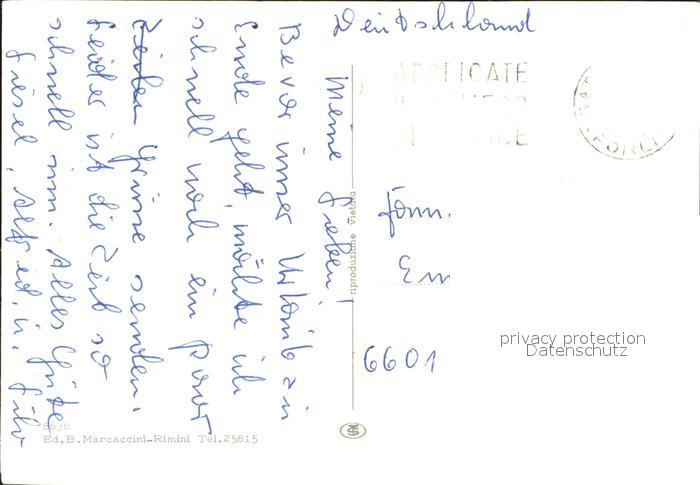 Deutschland
Meine Lieben!
Bevor unser Urlaub zu
Ende geht, möchte ich
schnell noch ein paar
Zeilen Grüsse senden.
Leider ist die Zeit so
schnell um. Alles Gute
Liesel, Alfred, u.
APPLICATE
FORLI
Fam.
Em
6601
privacy protection
Datenschutz
riproduzione vietata
8636
Ed.B.Marcaccini-Rimini Tel.25815